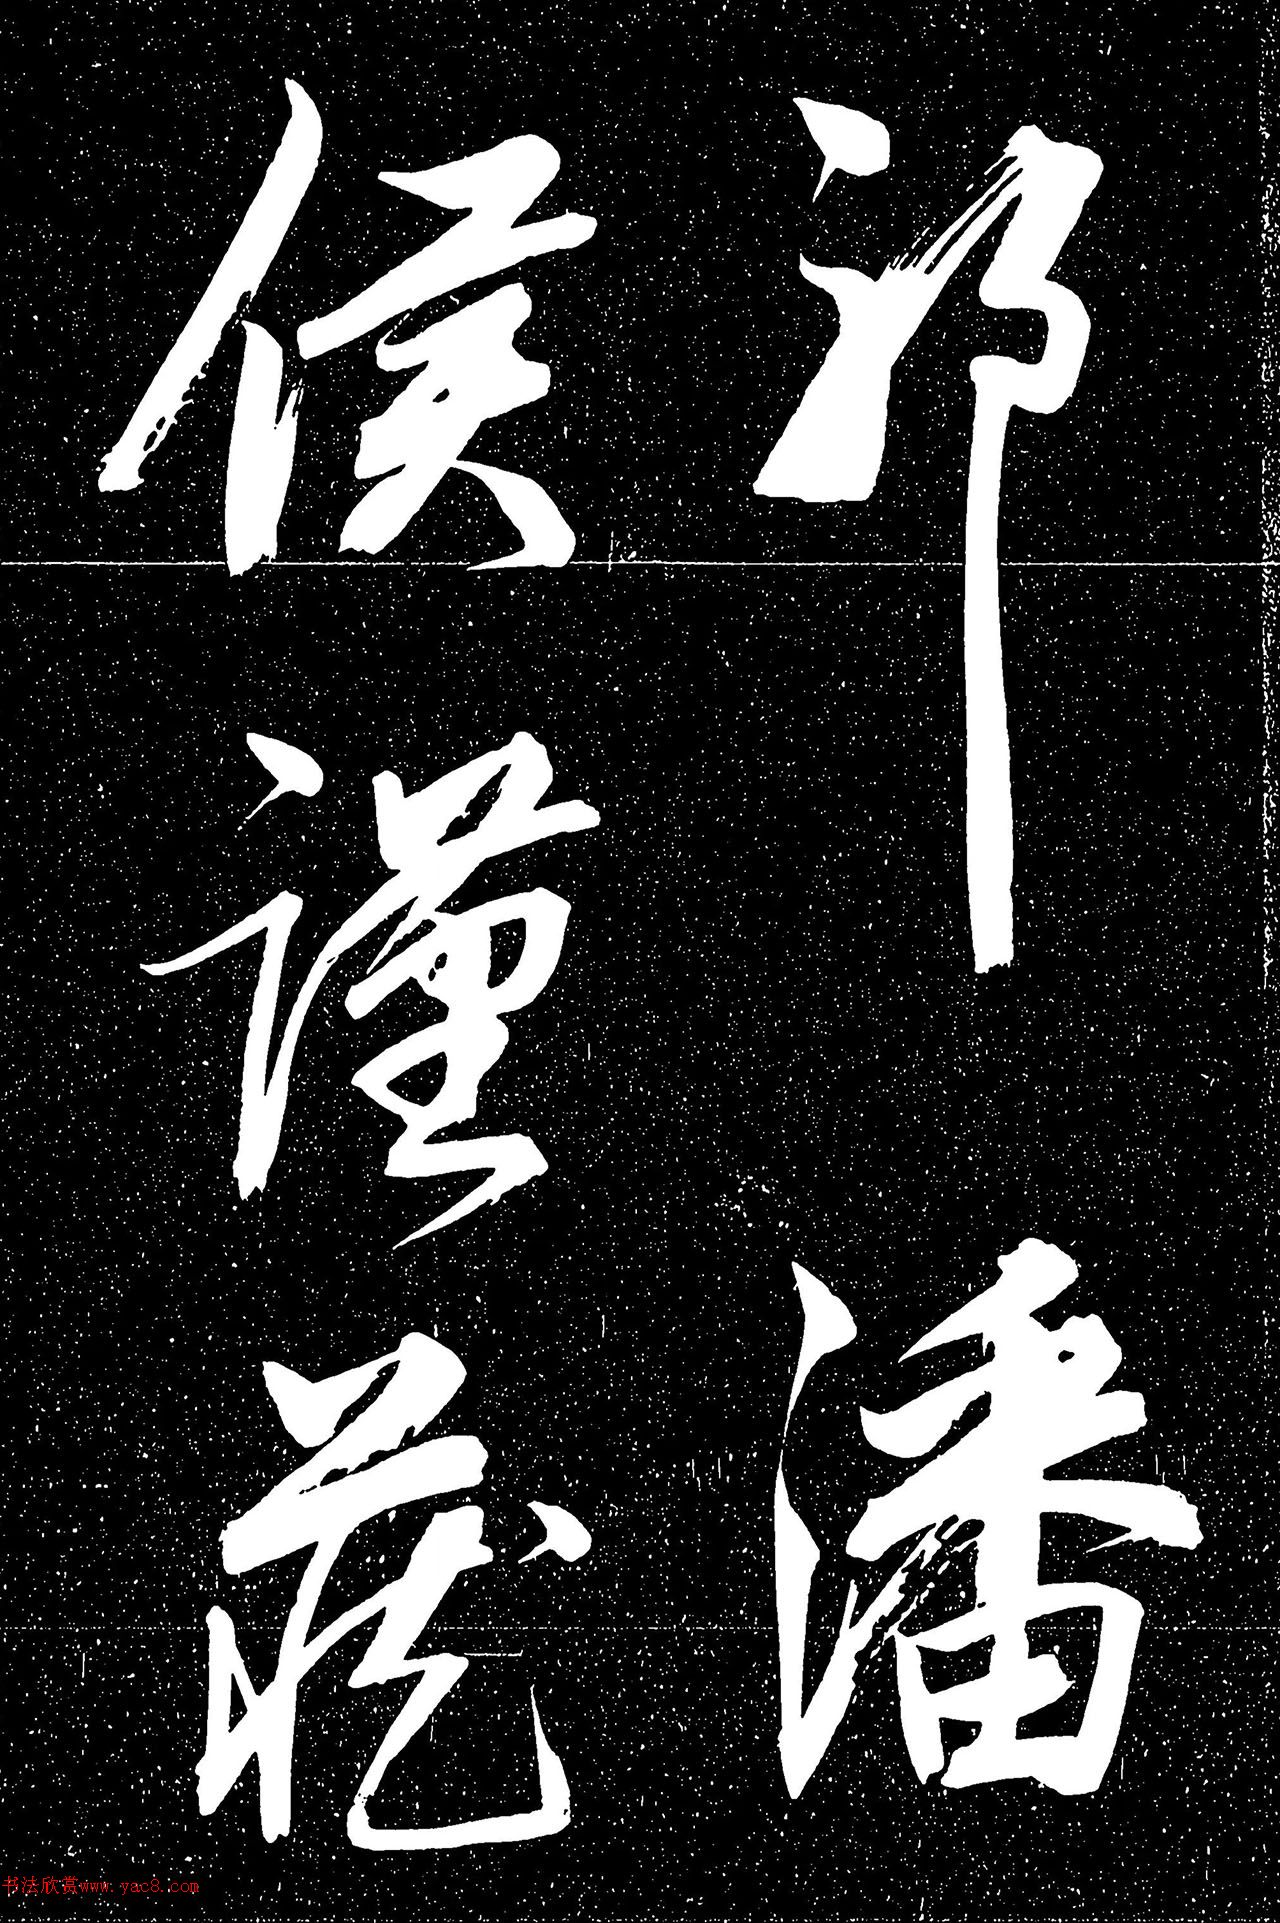 祁潘
侯謹藏
书法欣赏www.yac8.com